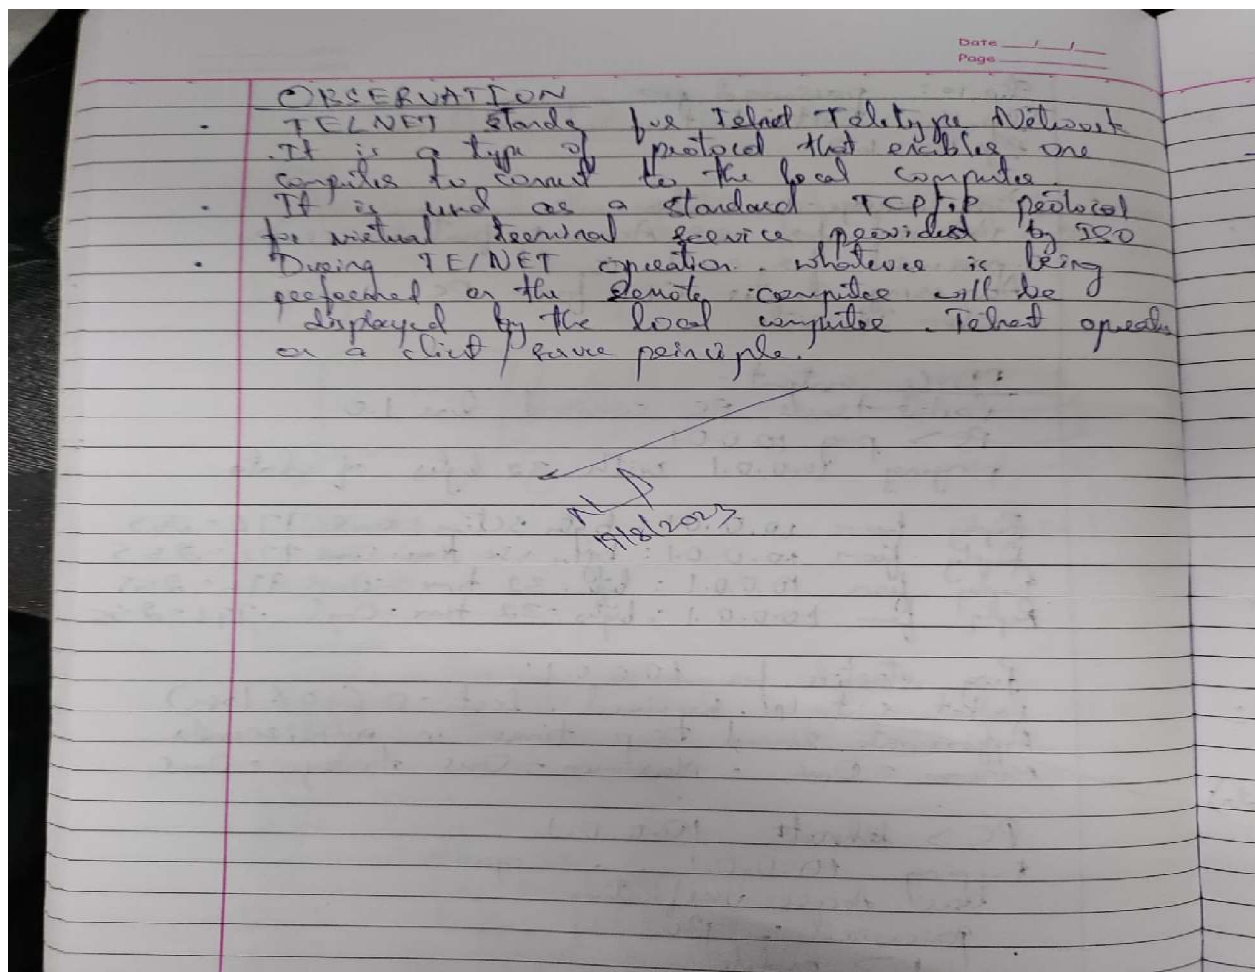 Date / /
Page
OBSERVATION
• TELNET stands for Telnet Teletype Network
. It is a type of protocol that enables one
computer to connect to the local computer.
• It is used as a standard TCP/IP protocol
for virtual terminal service provided by ISO
• During TELNET operation. whatever is being
performed on the remote computer will be
displayed by the local computer. Telnet operates
on a client/server principle.
19/8/2023